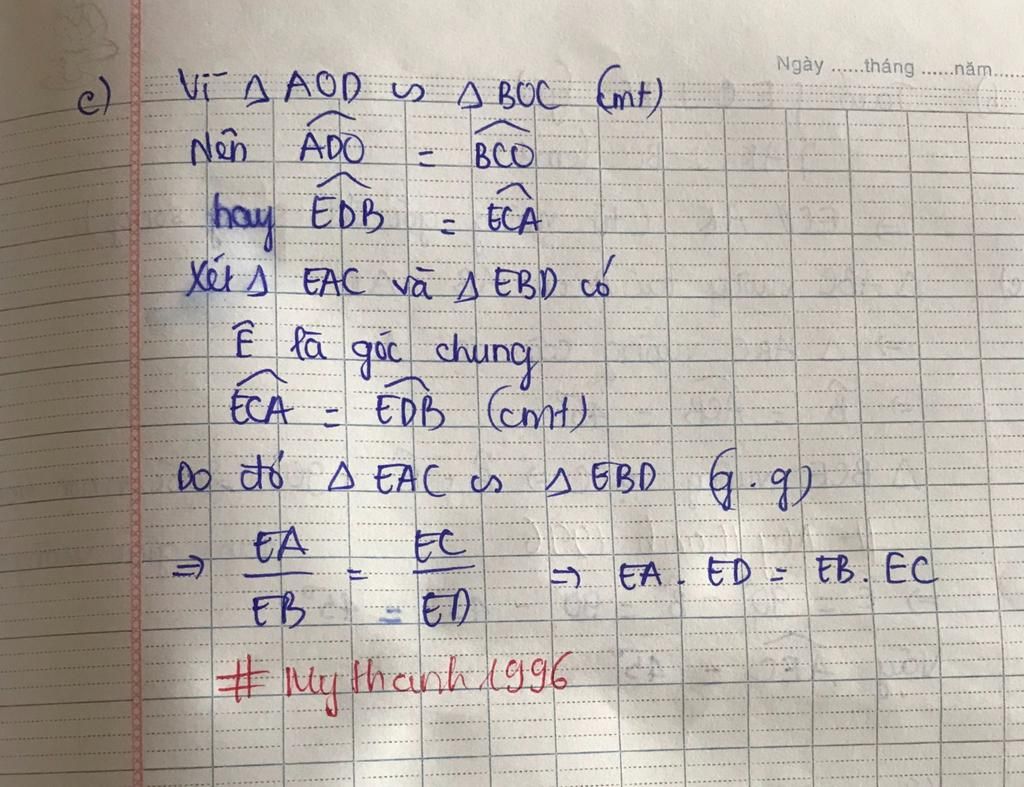 Ngày ......tháng ......năm......
c) Vì Δ AOD ∽ Δ BOC (mt)
Nên \widehat{ADO} = \widehat{BCO}
hay \widehat{EDB} = \widehat{ECA}
Xét Δ EAC và Δ EBD có
Ê là góc chung
\widehat{ECA} = \widehat{EDB} (cmt)
Do đó Δ EAC ∽ Δ EBD (g.g)
⇒ EA/EB = EC/ED ⇒ EA . ED = EB . EC
# Mythanh1996